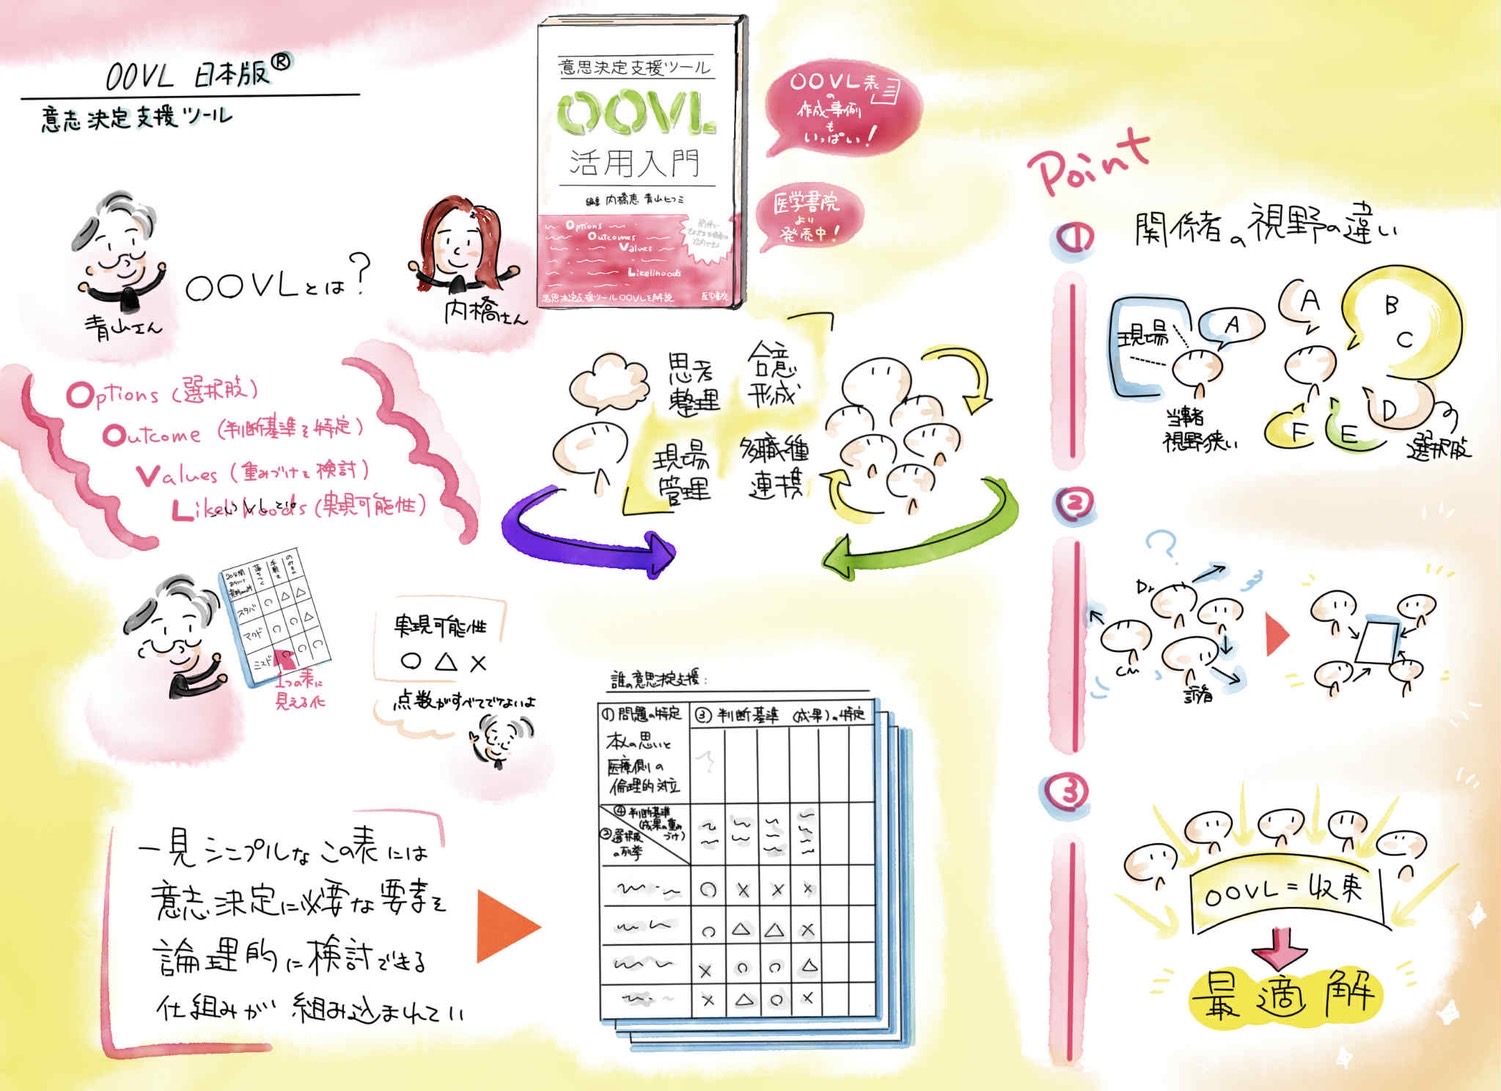 OOVL 日本版®
意志決定支援ツール
青山さん
OOVLとは?
内橋さん
意思決定支援ツール
OOVL
活用入門
編集 内橋恵 青山ヒフミ
Options
Outcomes
Values
Likelihoods
意思決定支援ツールOOVLを解説
医学書院
OOVL表
の
作成事例
も
いっぱい!
医学書院
より
発売中!
Options (選択肢)
Outcome (判断基準を特定)
Values (重みづけを検討)
Likelihoods (実現可能性)
思考
整理
合意
形成
現場
管理
多職種
連携
スタバ
マクド
ミスド
○ △ △
○ ○ △
○ ○ ○
1つの表に
見える化
実現可能性
○ △ ×
点数がすべてでないよ
一見シンプルなこの表には
意志決定に必要な要素を
論理的に検討できる
仕組みが組み込まれてい
誰の意思決定支援:
①問題の特定
③判断基準 (成果)の特定
本人の思いと
医療側の
倫理的対立
④判断基準
(成果の重み
づけ)
②選択肢
の列挙
○ × × ×
○ △ △ ×
× ○ ○ △
× △ ○ ×
Point
①
関係者の視野の違い
現場
A
当事者
視野狭い
A
B
C
D
E
F
選択肢
②
?
Dr
CM
③
OOVL=収束
最適解